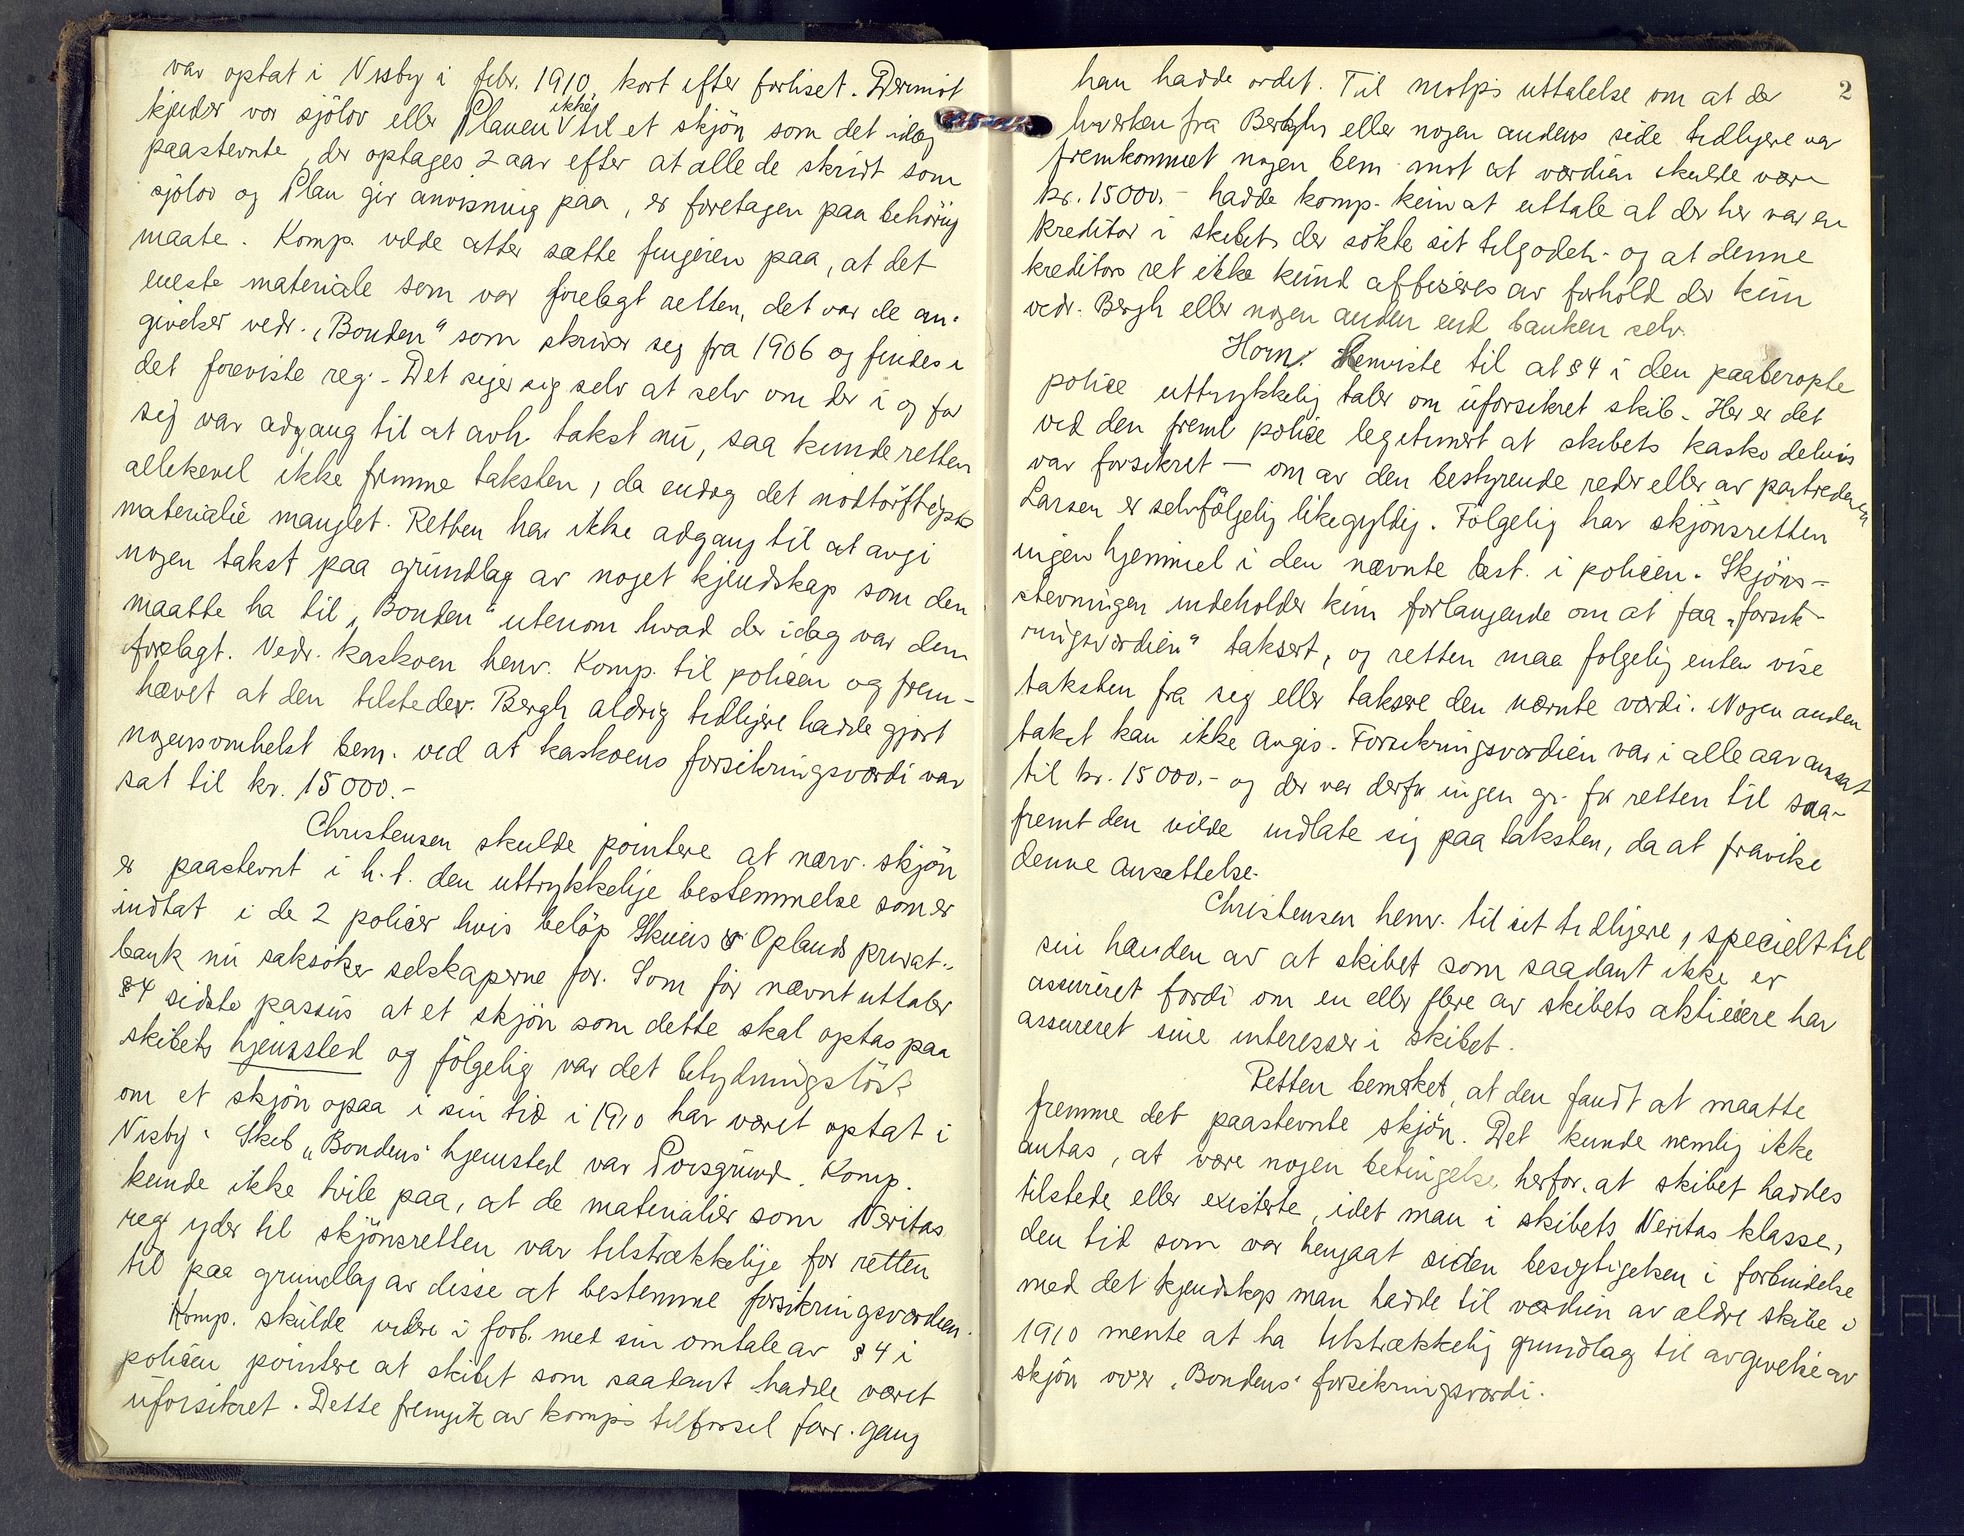 var optat i Visby i febr. 1910, kort efter forliset. Derimot
kjender vor sjölov eller Planen ikke til et skjön som det idag
paastevnte, der optages 2 aar efter at alle de skridt som
sjölov og Plan gir anvisning paa, er foretagen paa behörig
maate. Komp. vilde atter sætte fingeren paa, at det
eneste materiale som var forelagt retten, det var de an-
givelser vedr. "Bonden" som skriver seg fra 1906 og findes i
det foreviste reg. - Det siger sig selv at selv om der i og for
sig var adgang til at avh. takst nu, saa kunde retten
allikevel ikke fremme taksten, da endog det nödtörftigste
materiale manglet. Retten har ikke adgang til at avgi
nogen takst paa grundlag av noget kjendskap som den
maatte ha til "Bonden" utenom hvad der idag var dem
forelagt. Vedr. kaskoen henv. Komp. til policen og frem-
hævet at den tilstedev. Bergh aldrig tidligere hadde gjort
nogensomhelst bem. ved at kaskoens forsikringsværdi var
sat til kr. 15000.-
Christensen skulde pointere at nærv. skjön
er paastevnt i h. t. den uttrykkelige bestemmelse som er
indtat i de 2 policer hvis belöp Skiens & Oplands privat-
bank nu saksöker selskaperne for. Som för nævnt uttaler
§4 sidste passus at et skjön som dette skal optas paa
skibets hjemsted og fölgelig var det betydningslöst
om et skjön opaa i sin tid i 1910 har været optat i
Visby. Skib "Bondens" hjemsted var Porsgrund. Komp.
kunde ikke tvile paa, at de materialier som Veritas
reg yder til skjönsretten var tilstrækkelige for retten
til paa grundlag av disse at bestemme forsikringsværdien.
Komp. skulde videre i forb. med sin omtale av §4 i
policen pointere at skibet som saadant hadde været
uforsikret. Dette fremgik av komp's tilförsel forr. gang
2
han hadde ordet. Til motp's uttalelse om at der
hverken fra Berghs eller nogen andens side tidligere var
fremkommet nogen bem. mot at værdien skulde være
kr. 15000.- hadde komp. kun at uttale at der her var en
kreditor i skibet der sökte sit tilgodeh. og at denne
kreditors ret ikke kund afficeres av forhold der kun
vedr. Bergh eller nogen anden end banken selv.
Horn: Henviste til at §4 i den paaberopte
police uttrykkelig taler om uforsikret skib. Her er det
ved den freml police legitimert at skibets kasko delvis
var forsikret — om av den bestyrende reder eller av partrederen
Larsen er selvfölgelig likegyldig. Fölgelig har skjönsretten
ingen hjemmel i den nævnte best. i policen. Skjöns-
stevningen indeholder kun forlangende om at faa "forsik-
ringsværdien" taksert, og retten maa fölgelig enten vise
taksten fra seg eller taksere den nævnte værdi. Nogen anden
takst kan ikke avgis. Forsikringsværdien var i alle aar ansat
til kr. 15000.- og der var derfor ingen gr. for retten til saa-
fremt den vilde indlate sig paa taksten, da at fravike
denne ansættelse.
Christensen henv. til sit tidligere, specielt til
sin hævden av at skibet som saadant ikke er
assureret fordi om en eller flere av skibets aktieiere har
assureret sine interesser i skibet.
Retten bemerket, at den fandt at maatte
fremme det paastevnte skjön. Det kunde nemlig ikke
antas, at være nogen betingelse herfor, at skibet haddes
tilstede eller existerte, idet man i skibets Veritas klasse,
den tid som var hengaat siden besigtigelsen i forbindelse
med det kjendskap man hadde til værdien av ældre skibe i
1910 mente at ha tilstrækkelig grundlag til avgivelse av
skjön over "Bondens" forsikringsværdi.